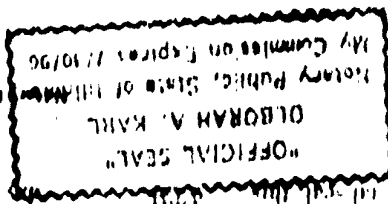 "OFFICIAL SEAL"
DEBORAH A. KARL
Notary Public, State of Illinois
My Commission Expires 7/10/96